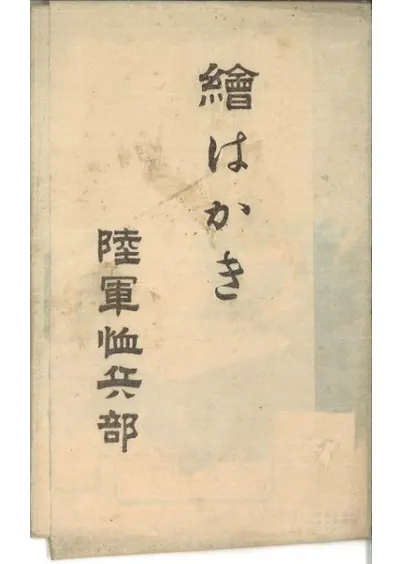 繪はかき
陸軍恤兵部